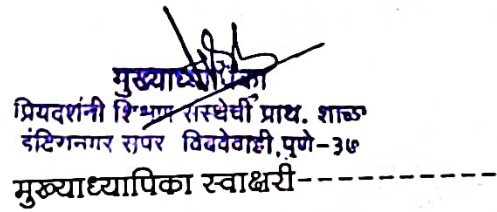 मुख्याध्यापिका
प्रियदर्शनी शिक्षण संस्थेची प्राथ. शाळा
इंदिरानगर सुपर बिबवेवाडी, पुणे-३७
मुख्याध्यापिका स्वाक्षरी-----------